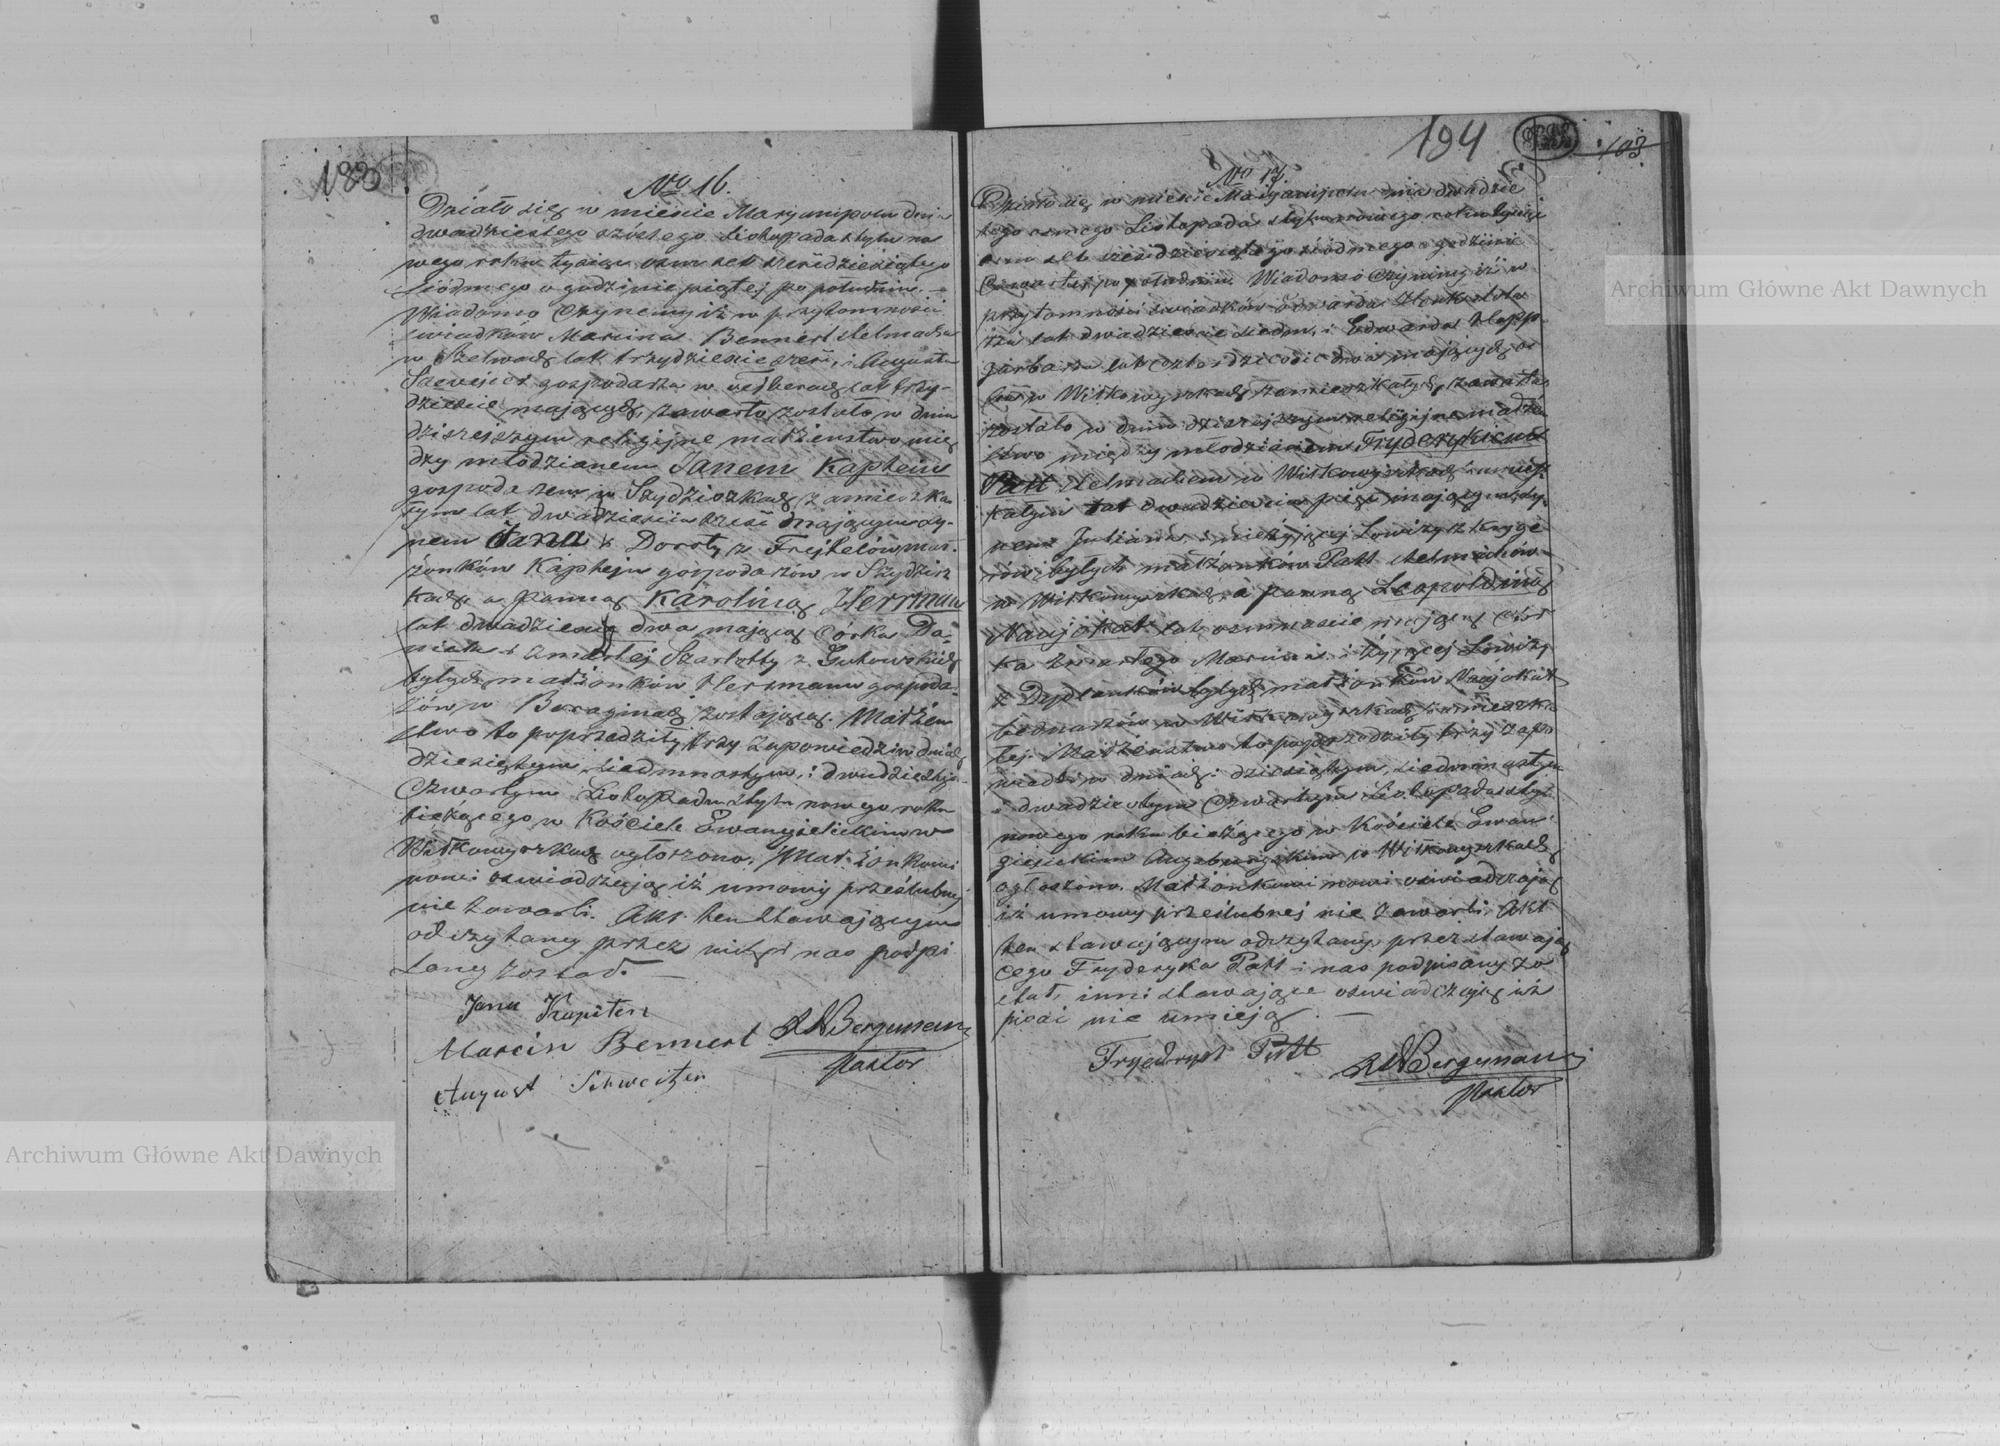 183
No 16.
Działo się w mieście Maryampolu dnia
dwudziestego szóstego Listopada stylu no
wego roku tysiąc osm set sześćdziesiątego
siódmego o godzinie piątej po południu. —
Wiadomo czynimy iż w przytomności
świadków Marcina Bennert stelmacha
w lat trzydzieście sześć, i Augusta
gospodarza w lat trzy-
dzieście mających, zawarte zostało w dniu
dzisiejszym religijne małżeństwo mię
dzy młodzianem Janem Kaptein
gospodarzem w Szydziszkach zamieszka
łym lat dwadzieścia sześć mającym sy-
nem Jana i Doroty z Frejtelów mał-
żonków Kaptejn gospodarzów w Szydzisz
kach, a panną Karoliną Herrman
lat dwadzieścia dwa mającą córką Da-
niela i zmarłej Szarlotty z Gutowskich
byłych małżonków Herrmann gospoda-
rzów w zostającą. Małżeń
stwo to poprzedziły trzy zapowiedzi w dniach
dziesiątym, siedmnastym, i dwudziestym
czwartym Listopada stylu nowego roku
bieżącego w Kościele Ewangielickim w
Wiłkowyszkach ogłoszone. Małżonkowie
nowi oswiadczają iż umowy przedślubnej
nie zawarli. Akt ten stawającym
odczytany przez nich i nas podpi
sany został. —
Jann Kapiten
Marcin Bennert
August Schweitzer
Bergemann
Pastor
194
103
No 17.
Działo się w mieście Maryampolu dnia dwudzie
tego osmego Listopada stylu nowego roku tysiąc
osm set sześćdziesiątego siódmego o godzinie
czwartej po południu. Wiadomo czynimy iż w
przytomności świadków Edwarda
lat dwadzieścia siedm, i Edwarda
garbarza lat czterdzieście dwa mających o
bu w Wiłkowyszkach zamieszkałych, zawarte
zostało w dniu dzisiejszym religijne małżeń
stwo między młodzianem Fryderykiem
Patt stelmachem w Wiłkowyszkach zamiesz
kałym lat dwadzieścia pięć mającym, sy-
nem Juliana i nieżyjącej Lowizy z
rów byłych małżonków Patt stelmachów
w Wiłkowyszkach, a panną Leopoldiną
Naujokat lat osmnaście mającą cór
ka zmarłego Marcina i żyjącej Lowizy
z byłych małżonków Naujokat
bednarzów w Wiłkowyszkach zamieszka
łej. Małżeństwo to poprzedziły trzy zapo
wiedzi w dniach: dziesiątym, siedmnastym
i dwudziestym czwartym Listopada stylu
nowego roku bieżącego w Kościele Ewan
gielickim Augsburgskim w Wiłkowyszkach
ogłoszone. Małżonkowie nowi oswiadczają
iż umowy przedślubnej nie zawarli. Akt
ten stawającym odczytany, przez stawają
cego Fryderyka Patt i nas podpisany zo
stał, inni stawające oswiadczają iż
pisać nie umieją. —
Fryderyk Patt
Bergemann
Pastor
Archiwum Główne Akt Dawnych
Archiwum Główne Akt Dawnych